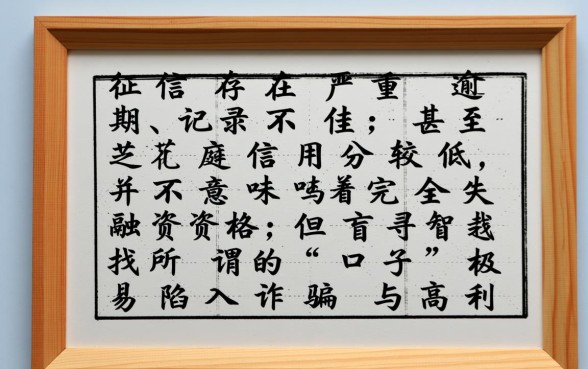 征信存在严重逾
期、记录不佳；甚至
芝花庭信用分较低，
并不意味着完全失
融资资格；但盲寻智
找所谓的“口子”极
易陷入诈骗与高利